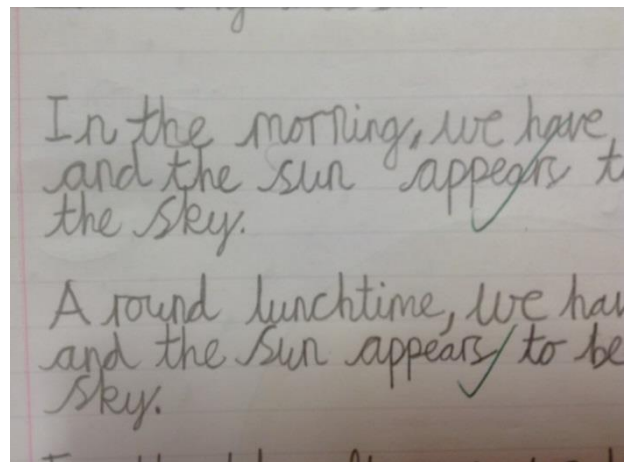 In the morning, we have
and the sun appears
the sky.
A round lunchtime, we
and the sun appears to be
sky.